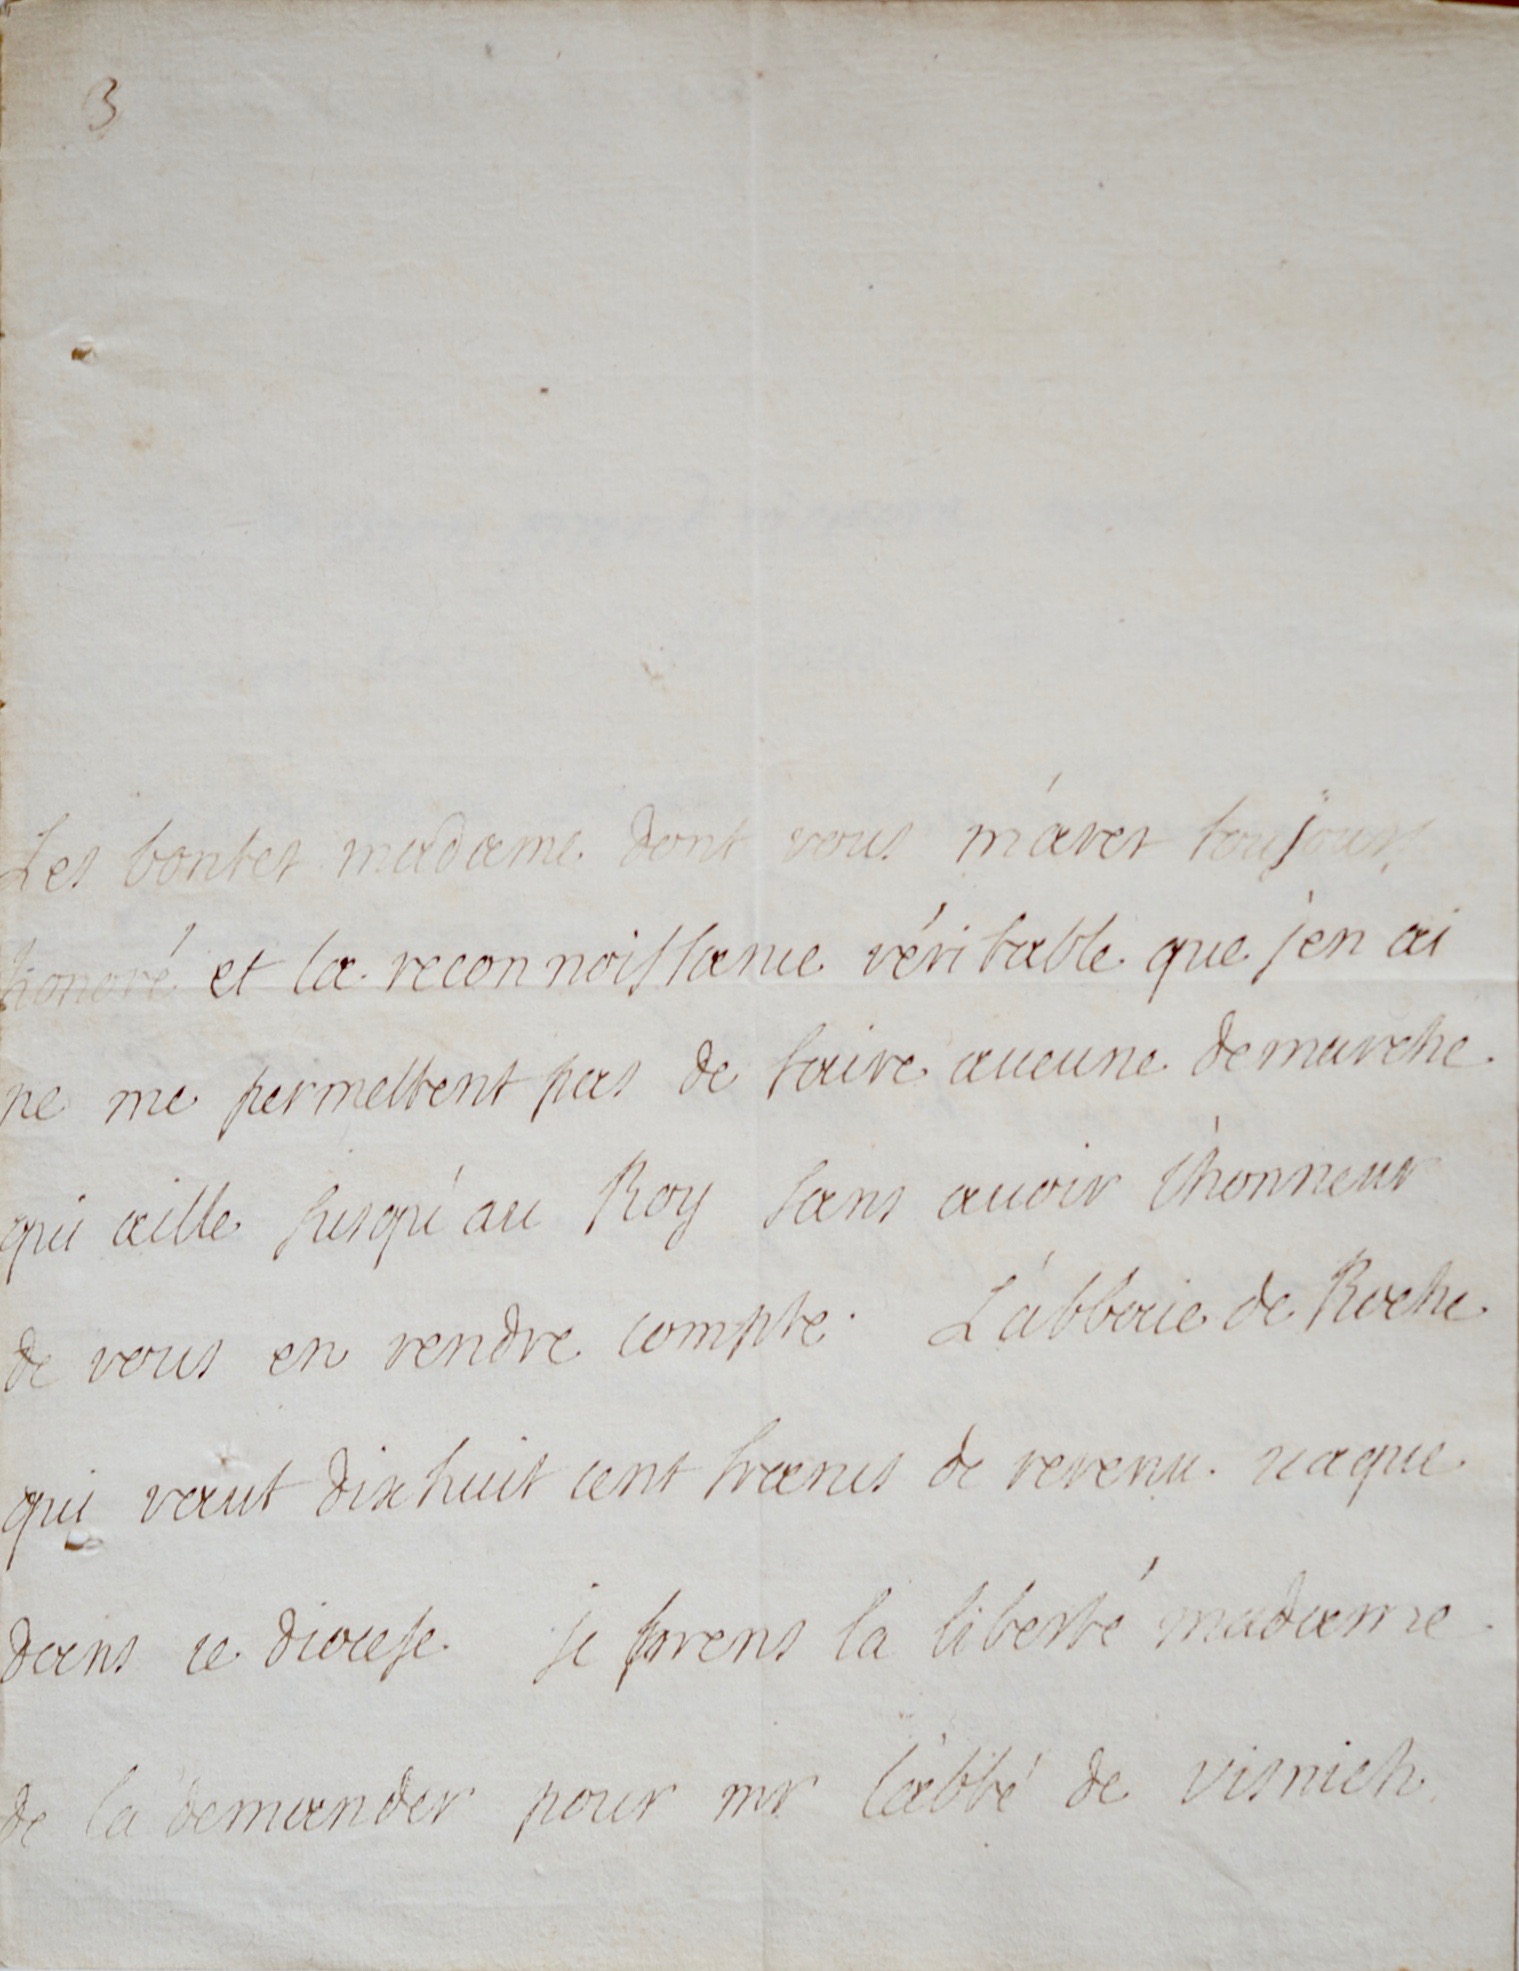 3
Les bontes madame dont vous m'aves toujours
honoré et la reconnoissance véritable que j'en ai
ne me permettent pas de faire aucune demarche
qui aille jusqu'au Roy sans avoir l'honneur
de vous en rendre compte. L'abbaie de Roche
qui vaut dixhuit cent francs de revenu vaque
dans ce diocese je prens la liberté madame
de la demander pour mr l'abbé de visnich